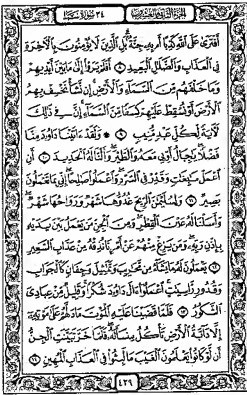 الجزء الثاني والعشرون سورة سبإ ٣٤
أَفْتَرَىٰ عَلَى ٱللَّهِ كَذِبًا أَم بِهِۦ جِنَّةٌۢ بَلِ ٱلَّذِينَ لَا يُؤْمِنُونَ بِٱلْـَٔاخِرَةِ
فِى ٱلْعَذَابِ وَٱلضَّلَـٰلِ ٱلْبَعِيدِ ٨ أَفَلَمْ يَرَوْا۟ إِلَىٰ مَا بَيْنَ أَيْدِيهِمْ
وَمَا خَلْفَهُم مِّنَ ٱلسَّمَآءِ وَٱلْأَرْضِ إِن نَّشَأْ نَخْسِفْ بِهِمُ
ٱلْأَرْضَ أَوْ نُسْقِطْ عَلَيْهِمْ كِسَفًا مِّنَ ٱلسَّمَآءِ إِنَّ فِى ذَٰلِكَ
لَـَٔايَةً لِّكُلِّ عَبْدٍ مُّنِيبٍ ٩ وَلَقَدْ ءَاتَيْنَا دَاوُۥدَ مِنَّا
فَضْلًا يَـٰجِبَالُ أَوِّبِى مَعَهُۥ وَٱلطَّيْرَ وَأَلَنَّا لَهُ ٱلْحَدِيدَ ١٠ أَنِ
ٱعْمَلْ سَـٰبِغَـٰتٍ وَقَدِّرْ فِى ٱلسَّرْدِ وَٱعْمَلُوا۟ صَـٰلِحًا إِنِّى بِمَا تَعْمَلُونَ
بَصِيرٌ ١١ وَلِسُلَيْمَـٰنَ ٱلرِّيحَ غُدُوُّهَا شَهْرٌ وَرَوَاحُهَا شَهْرٌ
وَأَسَلْنَا لَهُۥ عَيْنَ ٱلْقِطْرِ وَمِنَ ٱلْجِنِّ مَن يَعْمَلُ بَيْنَ يَدَيْهِ
بِإِذْنِ رَبِّهِۦ وَمَن يَزِغْ مِنْهُمْ عَنْ أَمْرِنَا نُذِقْهُ مِنْ عَذَابِ ٱلسَّعِيرِ
١٢ يَعْمَلُونَ لَهُۥ مَا يَشَآءُ مِن مَّحَـٰرِيبَ وَتَمَـٰثِيلَ وَجِفَانٍ كَٱلْجَوَابِ
وَقُدُورٍ رَّاسِيَـٰتٍ ٱعْمَلُوٓا۟ ءَالَ دَاوُۥدَ شُكْرًا وَقَلِيلٌ مِّنْ عِبَادِىَ
ٱلشَّكُورُ ١٣ فَلَمَّا قَضَيْنَا عَلَيْهِ ٱلْمَوْتَ مَا دَلَّهُمْ عَلَىٰ مَوْتِهِۦٓ
إِلَّا دَآبَّةُ ٱلْأَرْضِ تَأْكُلُ مِنسَأَتَهُۥ فَلَمَّا خَرَّ تَبَيَّنَتِ ٱلْجِنُّ
أَن لَّوْ كَانُوا۟ يَعْلَمُونَ ٱلْغَيْبَ مَا لَبِثُوا۟ فِى ٱلْعَذَابِ ٱلْمُهِينِ ١٤
٤٢٩